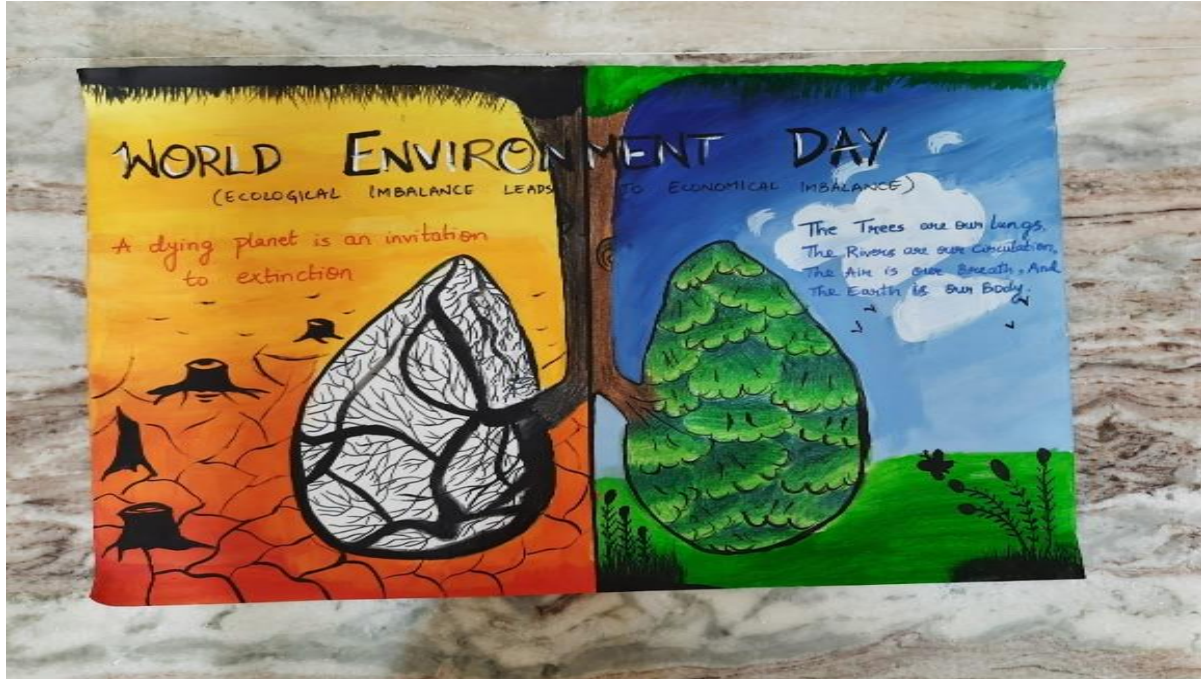 WORLD ENVIRONMENT DAY
(ECOLOGICAL IMBALANCE LEADS TO ECONOMICAL IMBALANCE)
A dying planet is an invitation
to extinction
The Trees are our lungs,
The Rivers are our circulation,
The Air is our Breath, And
The Earth is our Body.